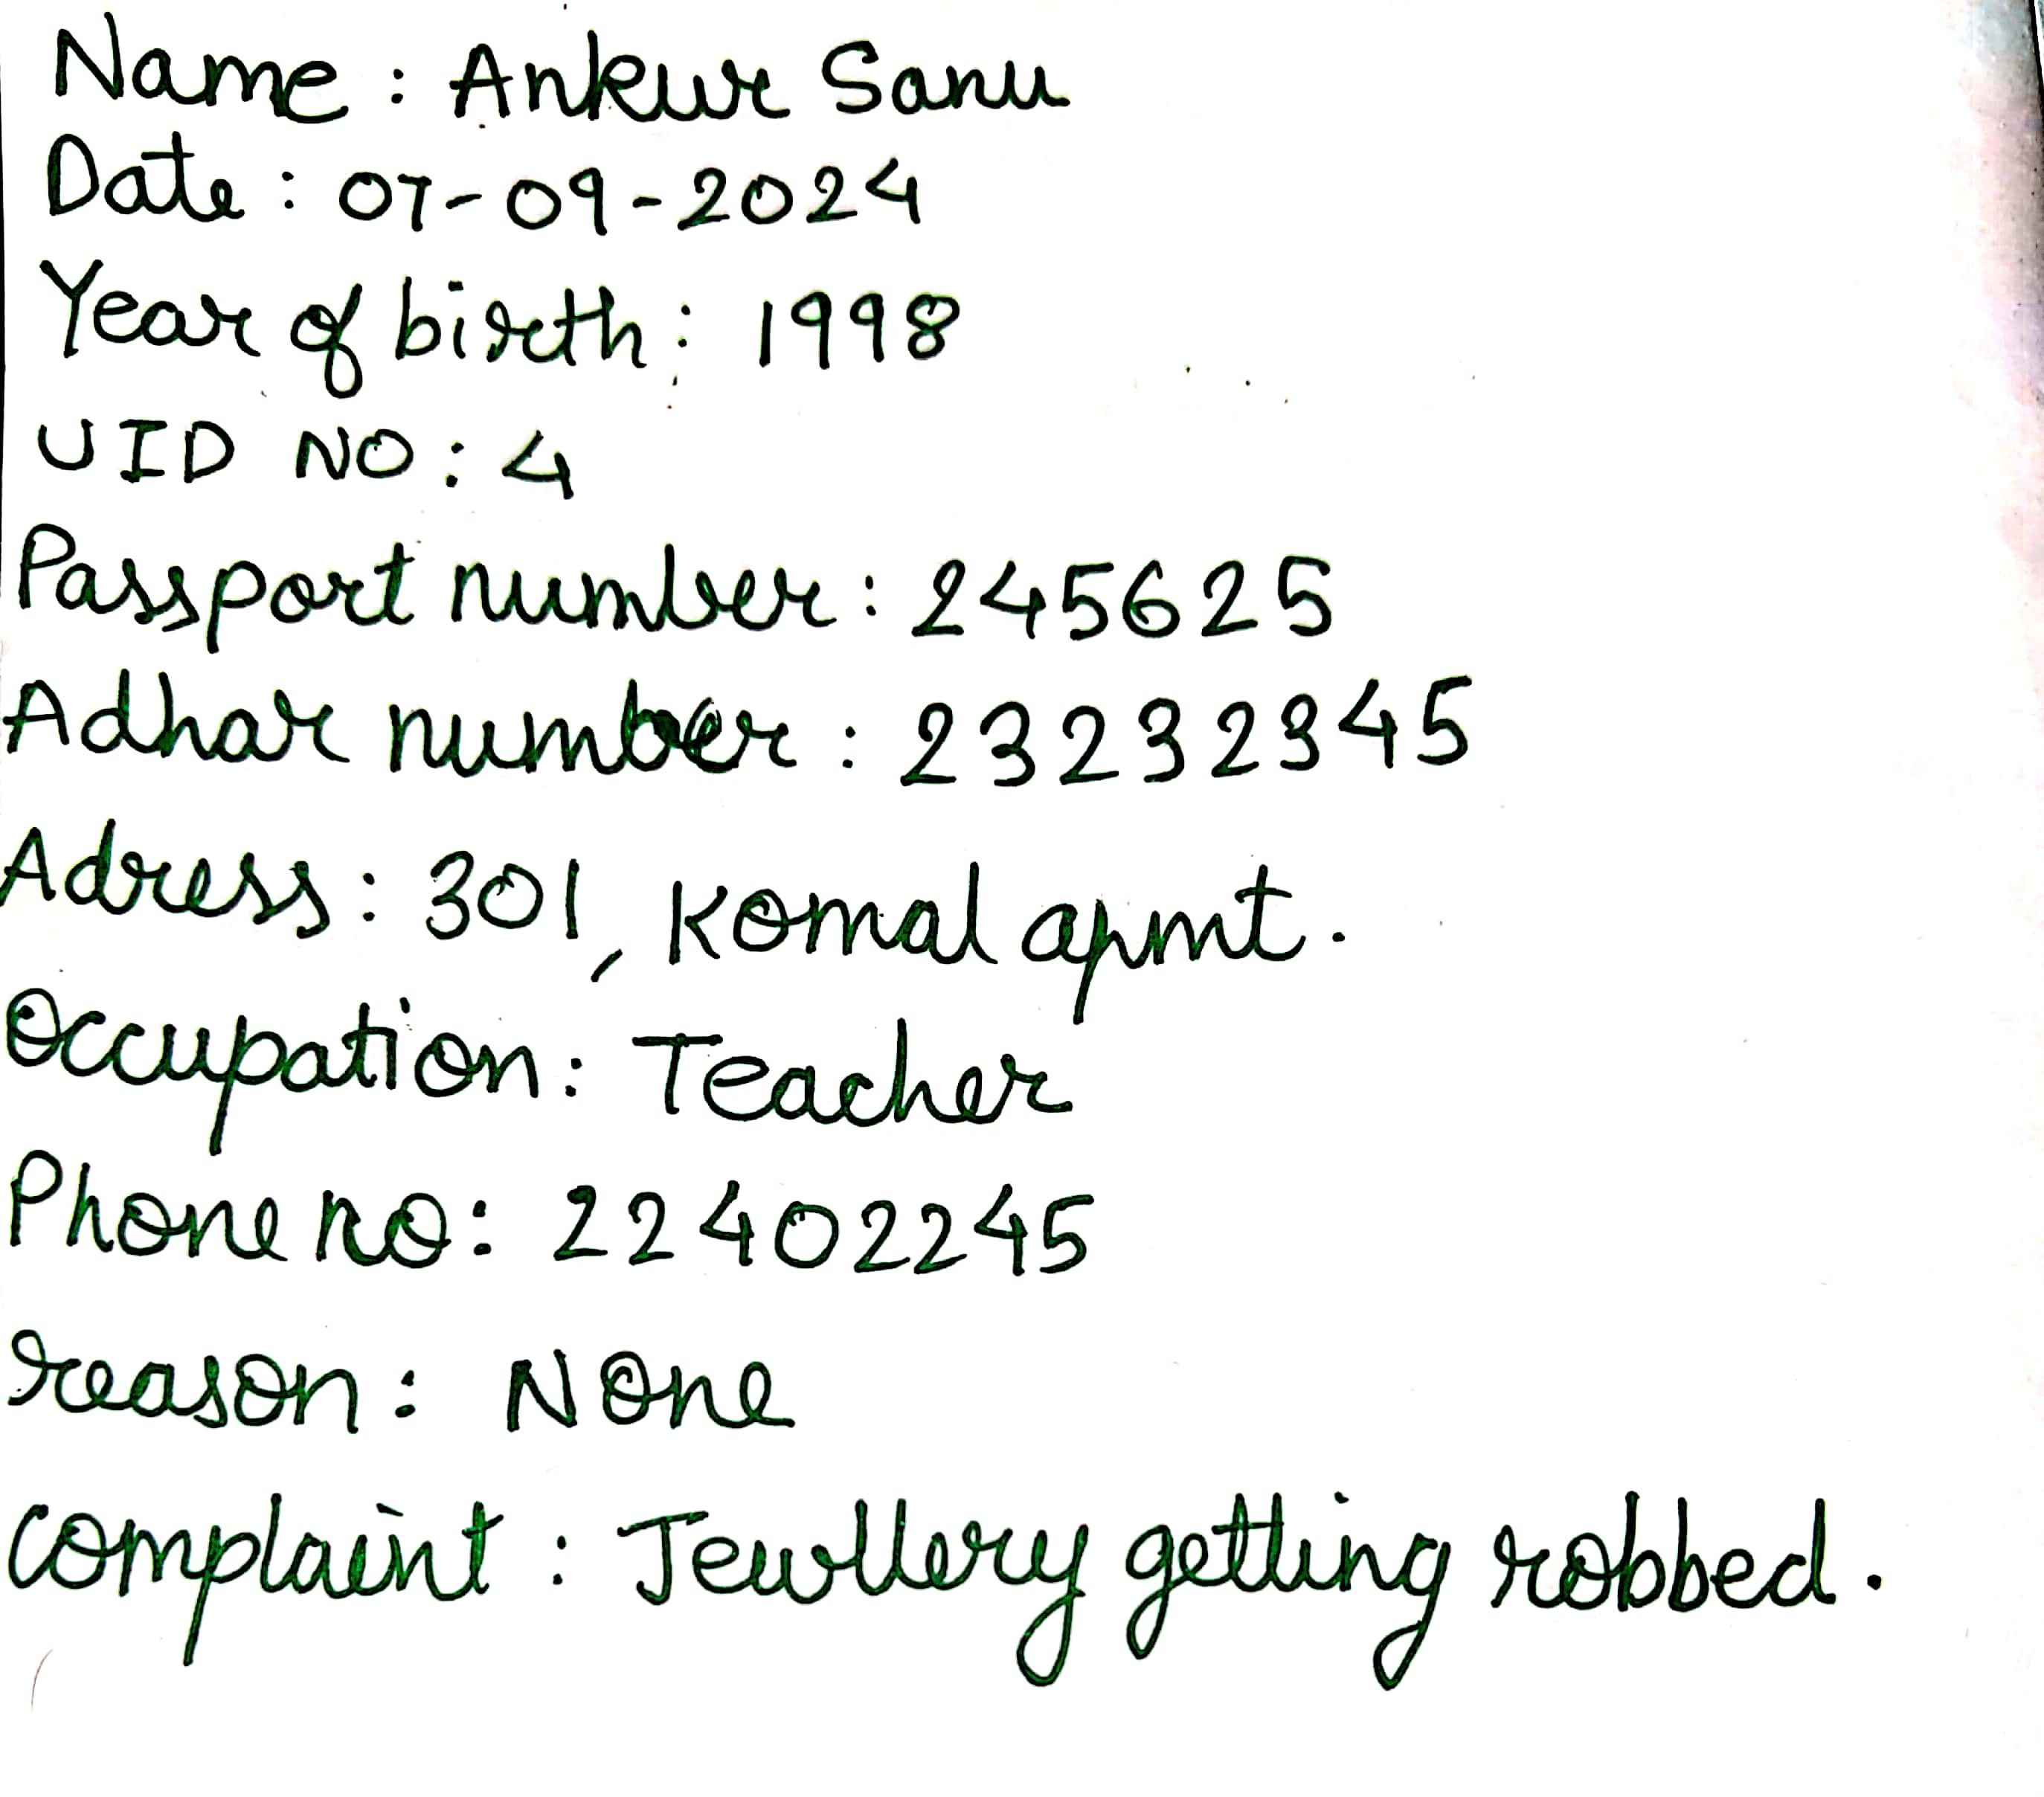 Name : Ankur Sanu
Date : 07-09-2024
Year of birth : 1998
UID NO : 4
Passport number : 245625
Adhar number : 23232345
Adress : 301, Komal apmt.
Occupation : Teacher
Phone no : 22402245
reason : None
complaint : Jewllery getting robbed.